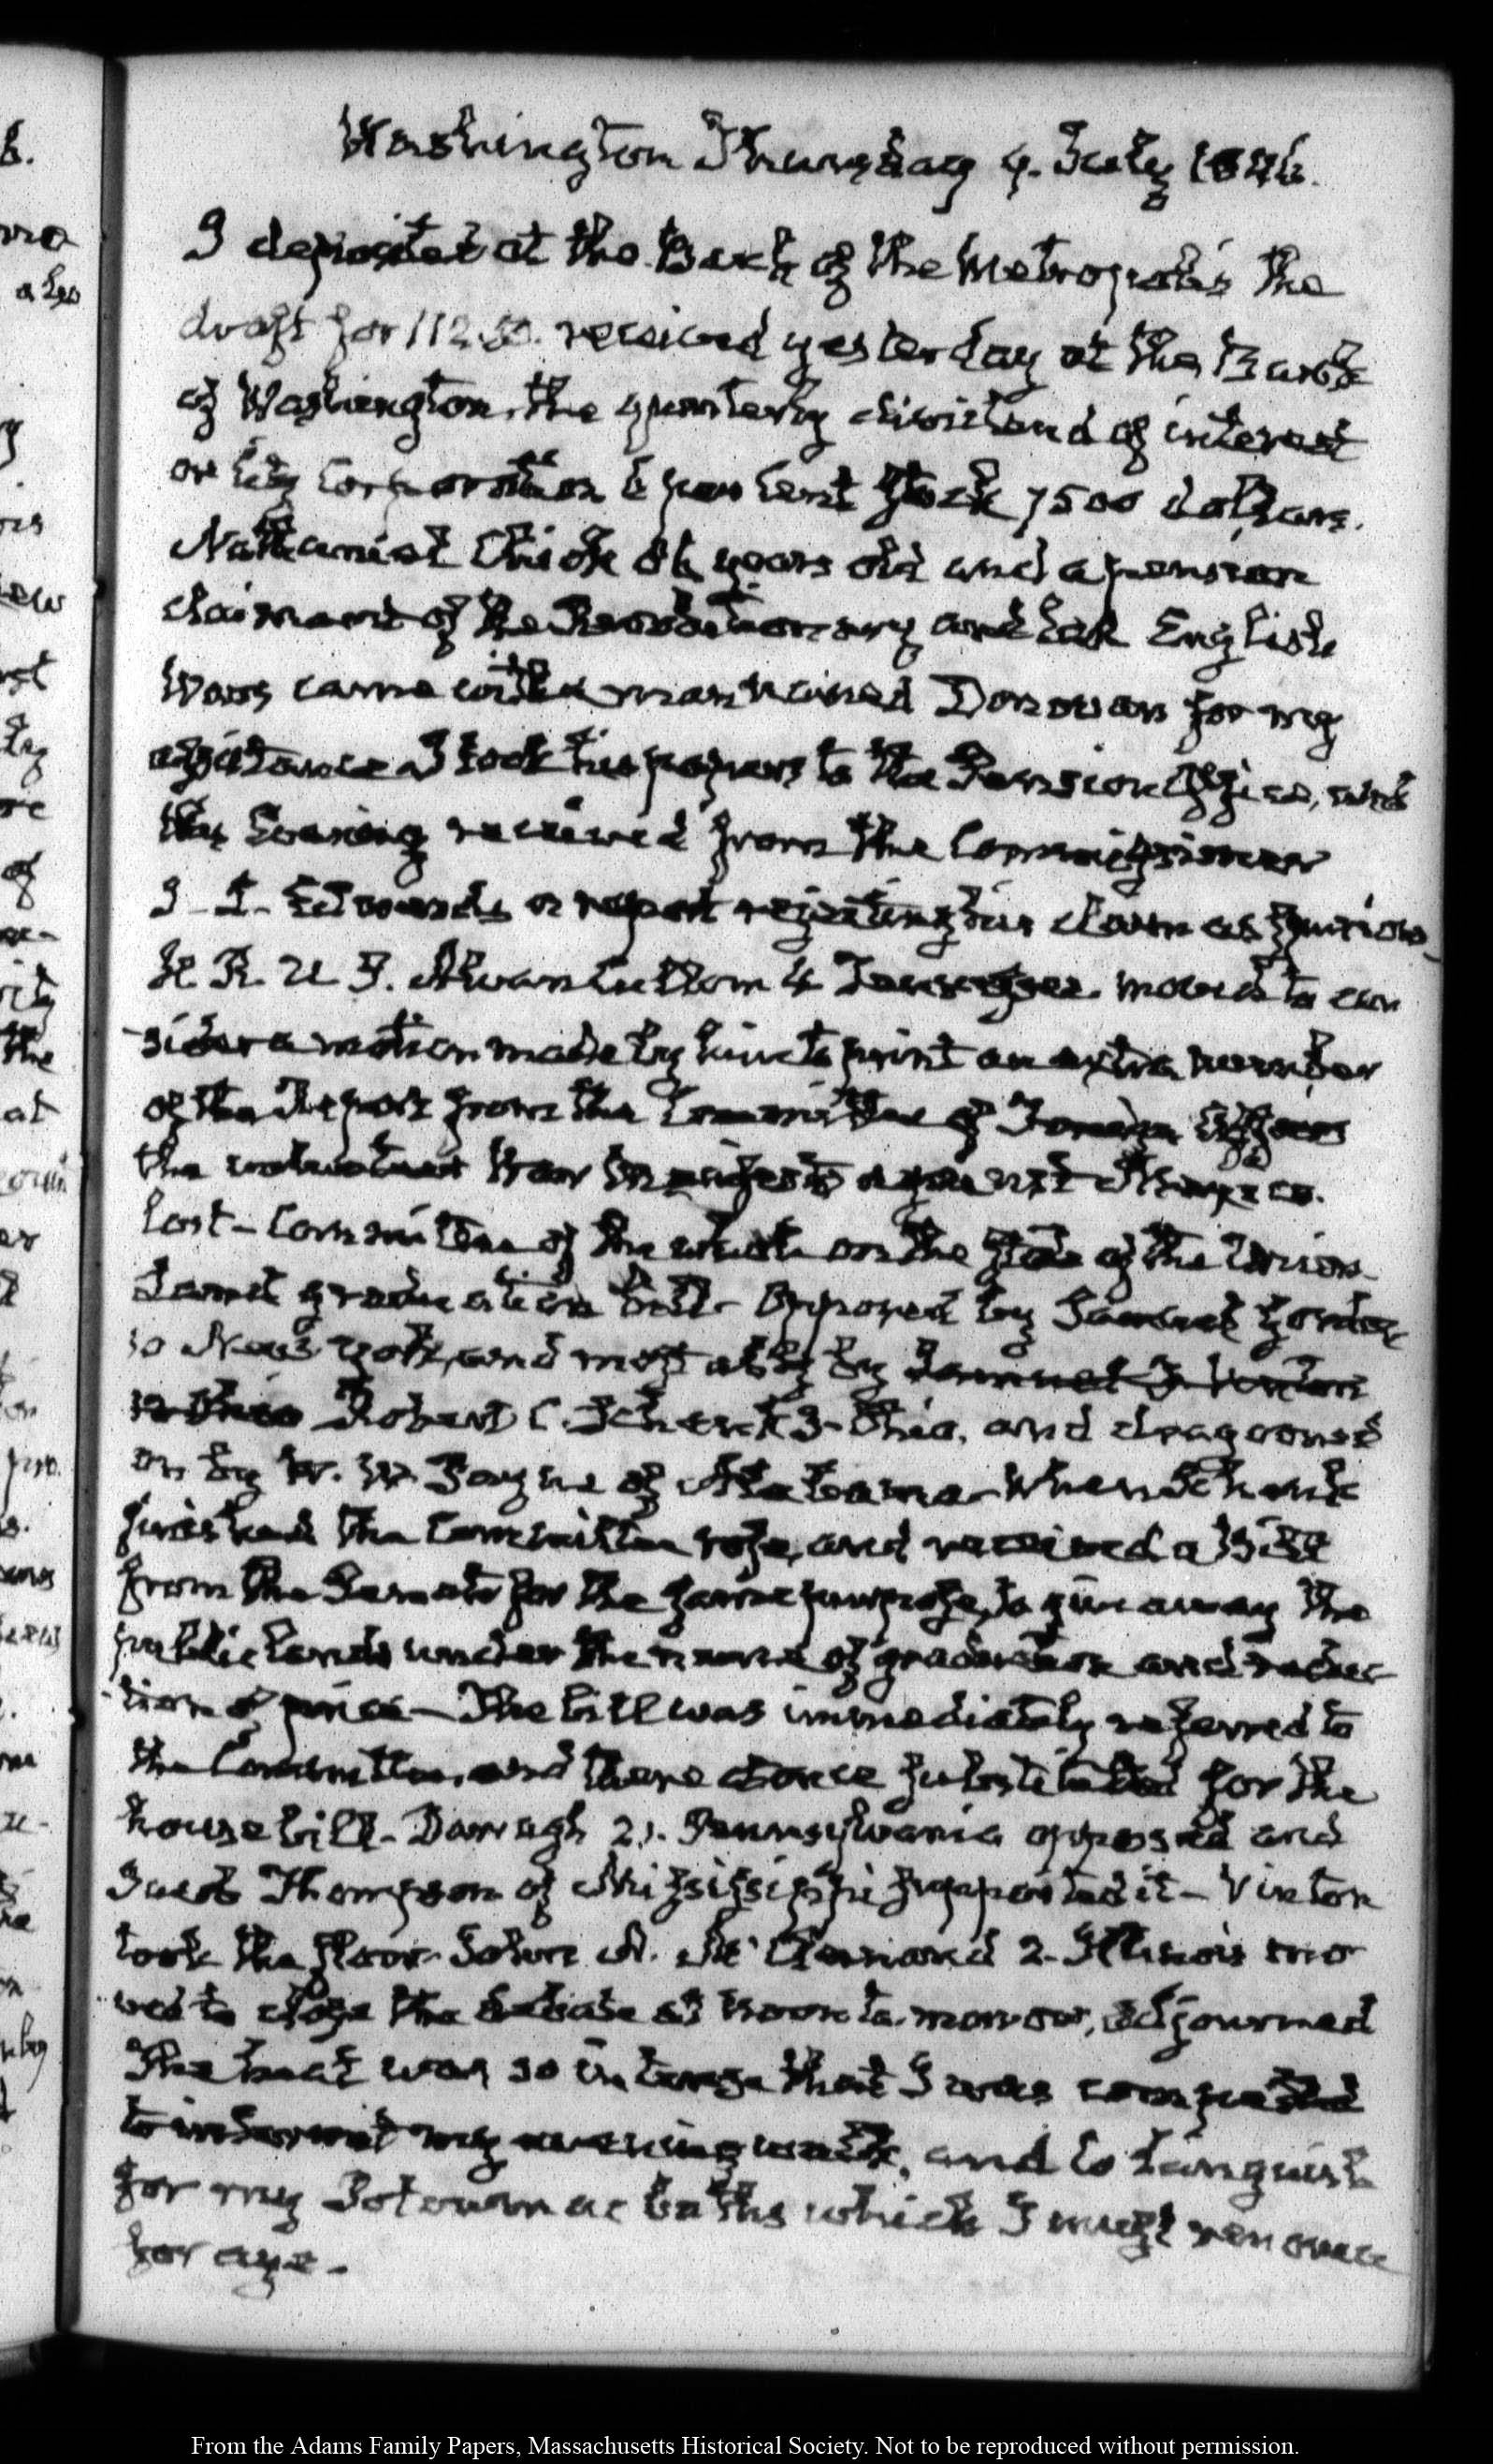 Washington Thursday 9. July 1846.
I deposited at the Bank of the Metropolis the
draft for 112.50. received yesterday at the Bank
of Washington, the quarterly dividend of interest
on City Corporation 6 per Cent Stock 7500 dollars.
Nathaniel Chick 86 years old and a pension
claimant of the Revolutionary and last English
Wars came with a man named Donovan for my
assistance I took his papers to the Pension Office, and
this Evening received from the Commissioner
J. L. Edwards a report rejecting his claim as spurious
H. R. U S. Alvan Cullom 4 Tennessee. moved to con
-sider a motion made by him to print an extra number
of the Report from the Committee of Foreign Affairs
the War Manifesto against Mexico.
lost – Committee of the whole on the State of the Union
Land graduation bill – Opposed by Samuel Gordon
10 New York, and most ably by Samuel F. Vinton
12 Ohio Robert C. Schenck 3 – Ohio, and dragooned
on by W. W. Payne of Alabama – When Schenck
finished the Committee rose, and received a Bill
from the Senate for the same purpose, to give away the
public lands under the name of graduation and reduc
-tion of price – The bill was immediately referred to
the Committee, and there at once substituted for the
house bill – Darragh 21. Pennsylvania opposed and
Jacob Thompson of Mississippi supported it – Vinton
took the floor – John A. McClernand 2 – Illinois mo
ved to close the debate at Noon to-morrow, adjourned
The heat was so intense that I was compelled
to intermit my evening walk, and to languish
for my Potowmac baths which I must renounce
for aye –
From the Adams Family Papers, Massachusetts Historical Society. Not to be reproduced without permission.